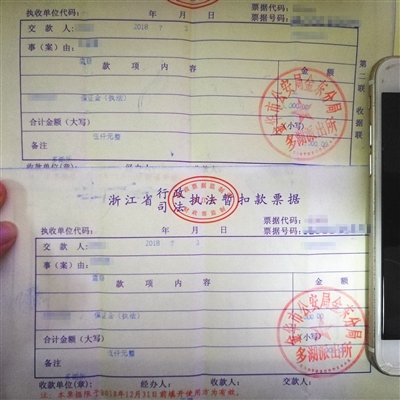 执收单位代码: 票据代码:
交 款 人: 2018 年 7 月 3 日 票据号码:
事(案)由: 盗窃
款 项 内 容 金 额
保证金(执法)
合计金额(大写) 伍仟元整 (小写)
备注
第二联
收据联
金华市公安局金东分局
多湖派出所
浙江省行政司法执法暂扣款票据
执收单位代码: 票据代码:
交 款 人: 2018 年 7 月 3 日 票据号码:
事(案)由: 盗窃
款 项 内 容 金 额
保证金(执法)
合计金额(大写) 伍仟元整
备注
金华市公安局金东分局
多湖派出所
收款单位(章): 经办人: 收款人: 交款人:
注:本票据限于2018年12月31日前填开使用方为有效。